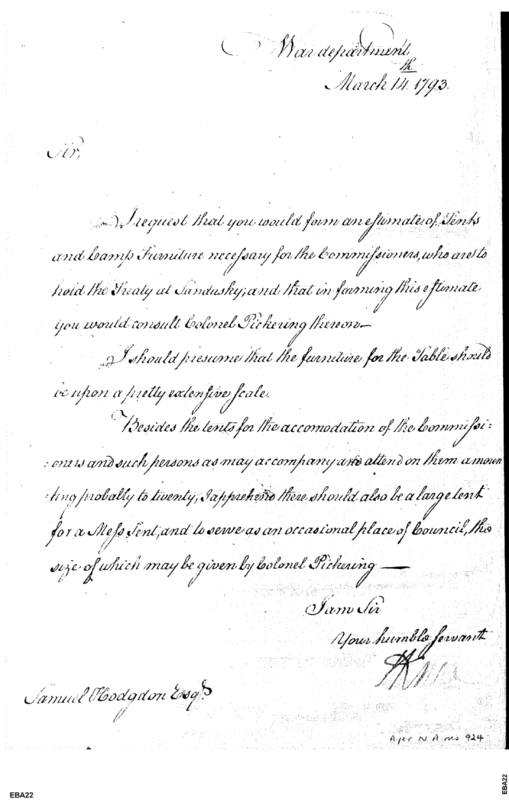 War department
March 14th 1793.
Sir,
I request that you would form an estimate of Tents
and Camp Furniture necessary for the Commissioners, who are to
hold the Treaty at Sandusky; and that in forming this estimate
you would consult Colonel Pickering thereon.—
I should presume that the furniture for the Table should
be upon a pretty extensive scale.
Besides the tents for the accomodation of the Commissi-
:oners and such persons as may accompany and attend on them amoun
:ting probably to twenty, I apprehend there should also be a large tent
for a Mess Tent, and to serve as an occasional place of Council, the
size of which may be given by Colonel Pickering —
I am Sir
Your humble servant
HKnox
Samuel Hodgdon Esqr.
Ayer N.A. ms 924
EBA22
EBA22